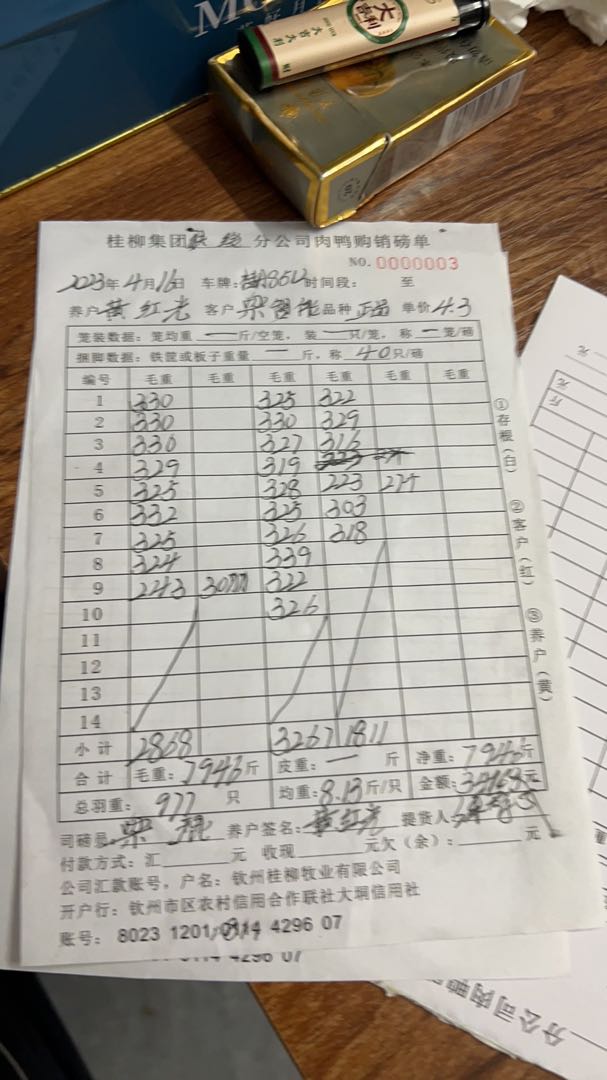 大吉大利
桂柳集团 分公司肉鸭购销磅单
NO. 0000003
2023年4月16日 车牌: 时间段: 至
养户 黄红光 客户 梁 品种 正品 单价 4.3
笼装数据: 笼均重 一 斤/空笼, 装 一 只/笼, 称 一 笼/磅
捆脚数据: 铁筐或板子重量 一 斤, 称 40 只/磅
编号 毛重 毛重 毛重 毛重 毛重 毛重
1 330 325 322
2 330 330 329
3 330 327 316
4 329 319
5 325 328 223 27只
6 332 325 303
7 325 326 318
8 324 339
9 243 30只 322
10 326
11
12
13
14
小计 2868 3267 1811
合计 毛重: 7946斤 皮重: 一 斤 净重: 7946斤
总羽重: 977 只 均重: 8.13斤/只 金额: 元
司磅员 梁 养户签名: 黄红光 提货人
付款方式: 汇 元 收现 元欠(余): 元
公司汇款账号, 户名: 钦州桂柳牧业有限公司
开户行: 钦州市区农村信用合作联社大垌信用社
账号: 8023 1201 0114 4296 07
①存根(白)
②客户(红)
③养户(黄)
斤 元
分公司肉鸭